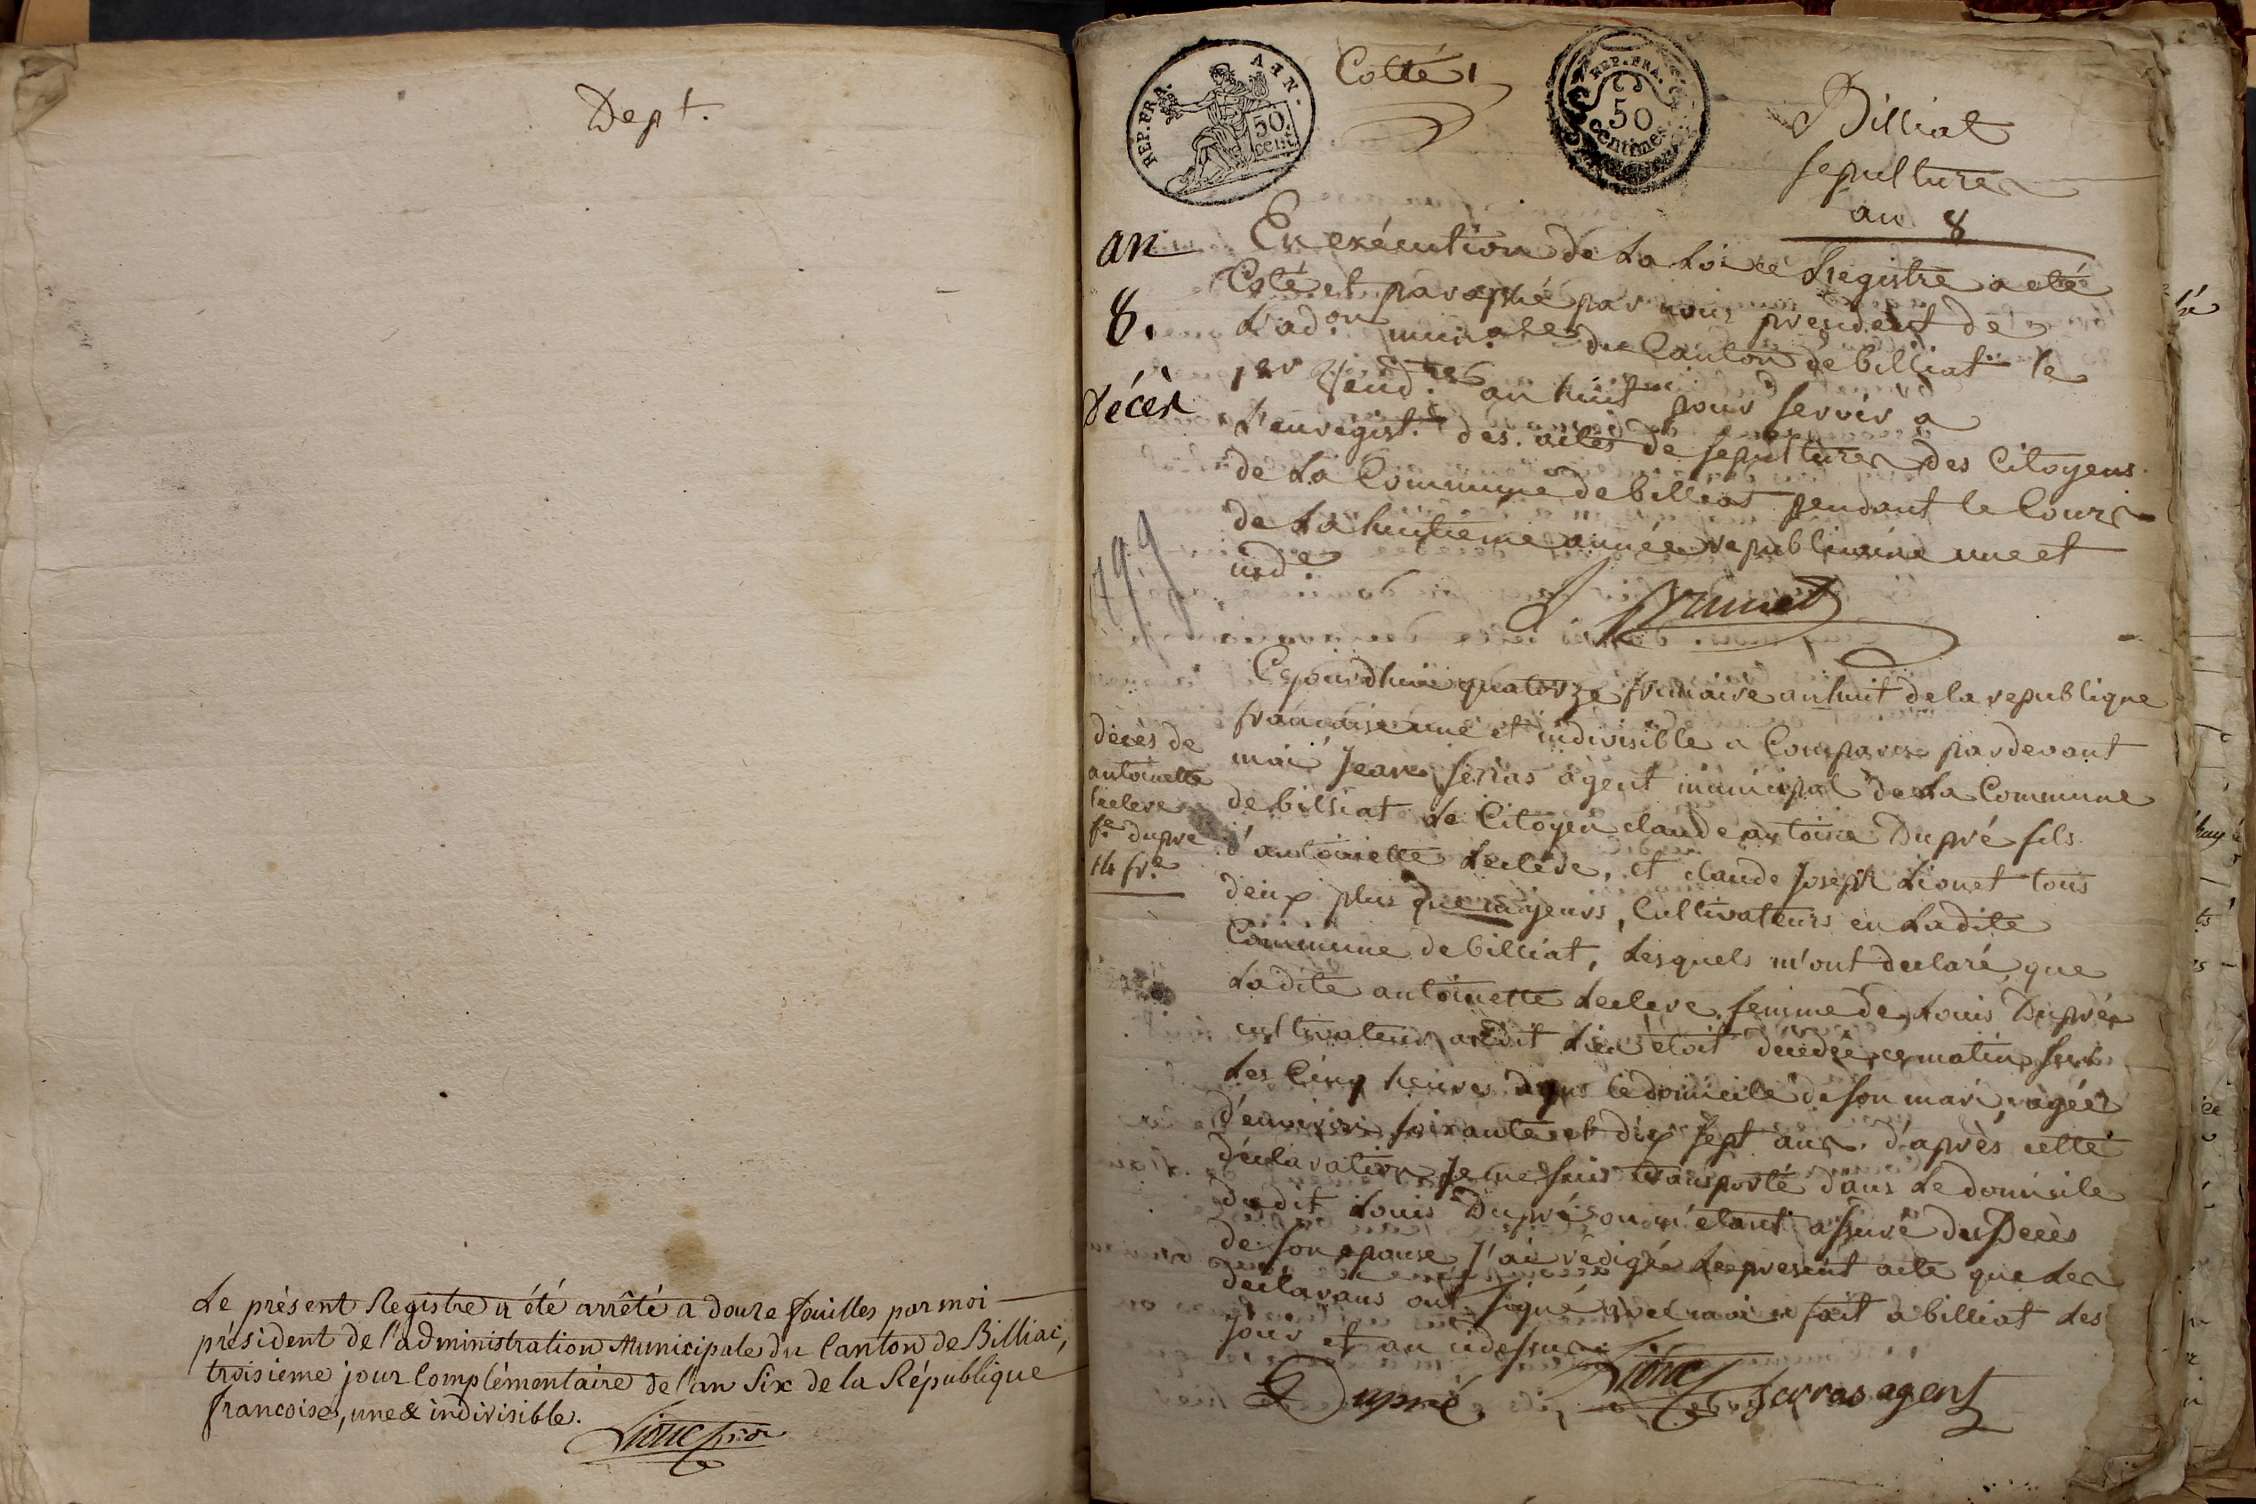 Dept.
Le présent Registre a été arrêté a douze feuilles par moi
président de l'administration Municipale du Canton de Billiac,
troisieme jour Complèmentaire de l'an Six de la République
francoise, une & indivisible.
REP. FRA.
50
cent.
Cotté 1
REP. FRA.
50
centimes
Billiat
sepultures
an 8
an
8.
Décès
En exécution de La Loi ce Registre a eté
Coté et paraphé par nous president de
L'ad.on mun.ale du Canton de billiat le
1er Vend.re an huit pour servir a
L'enregist.t des actes de sepultures des Citoyens
de La Commune de billiat pendant le Cours
de La huitieme année republicaine une et
ind.e
Brunet
799
décès de
antoinette
leclere
fe dupre
14 fre
Cejourdhui quatorze frimaire an huit de la republique
francaise une et indivisible a Comparu pardevant
moi Jean serras agent municipal de La Commune
de billiat le Citoyen claude antoine Dupré fils
d'antoinette Leclere, et claude Joseph Lionet tous
deux plus que majeurs, Cultivateurs en Ladite
Commune de billiat, Lesquels m'ont declaré que
Ladite antoinette Leclere femme de Louis Dupré
cultivateur audit Lieu étoit décédée ce matin sur
Les Cinq heures dans le domicile de son mari, agée
d'environ soixante et dix sept ans. d'après cette
déclaration Je me suis transporté dans Le domicile
dudit Louis Dupré ou m'étant assuré du Décès
de son epouse J'ai rédigé Le présent acte que Les
declarans ont signé avec moi fait a billiat Les
Jour et an cidessus
Dupré Lionet serras agent